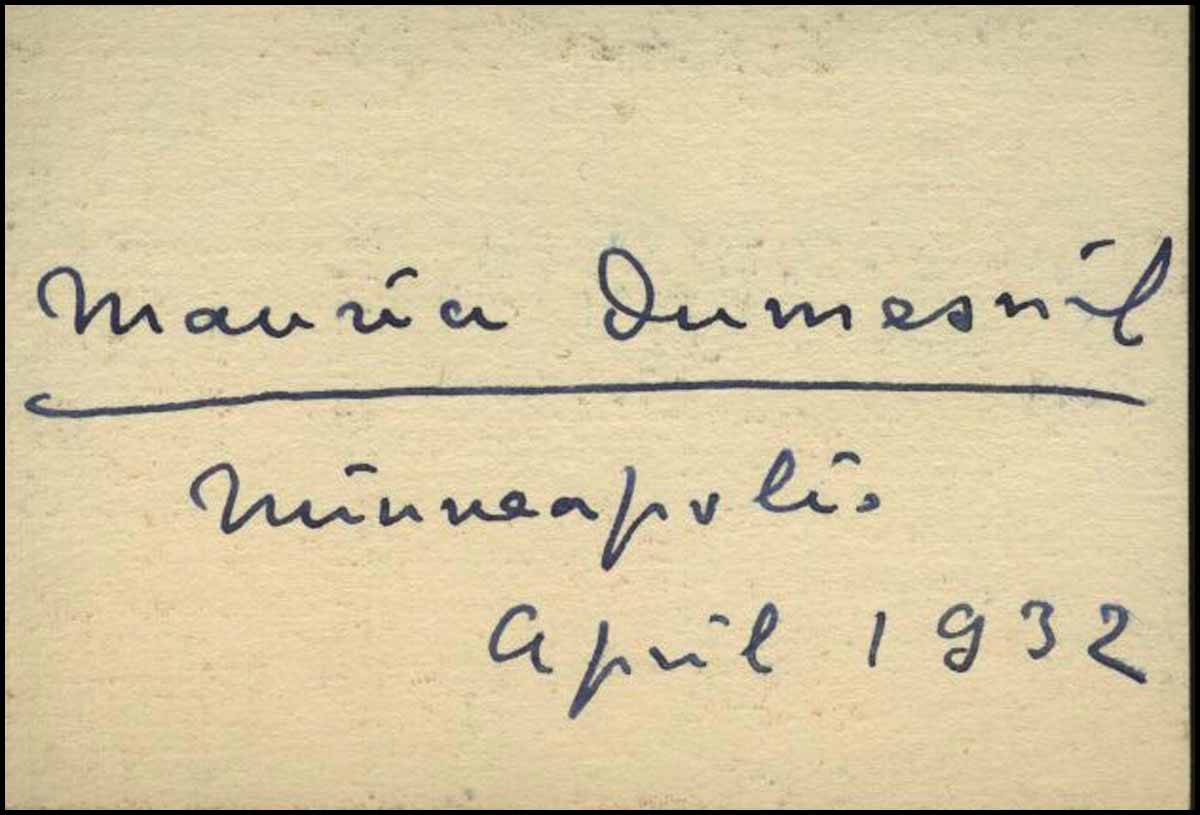 Maurice Dumesnil
Minneapolis
April 1932